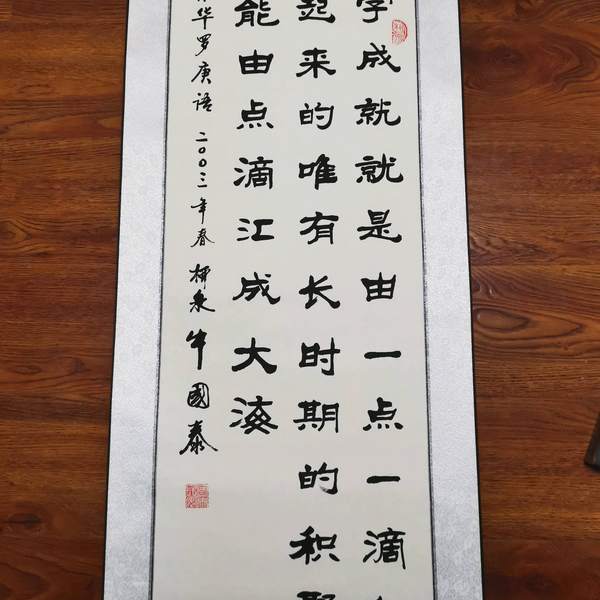 学成就就是由一点一滴
起来的唯有长时期的积聚
能由点滴汇成大海
华罗庚语 二〇〇三年春 柳泉 牛國泰